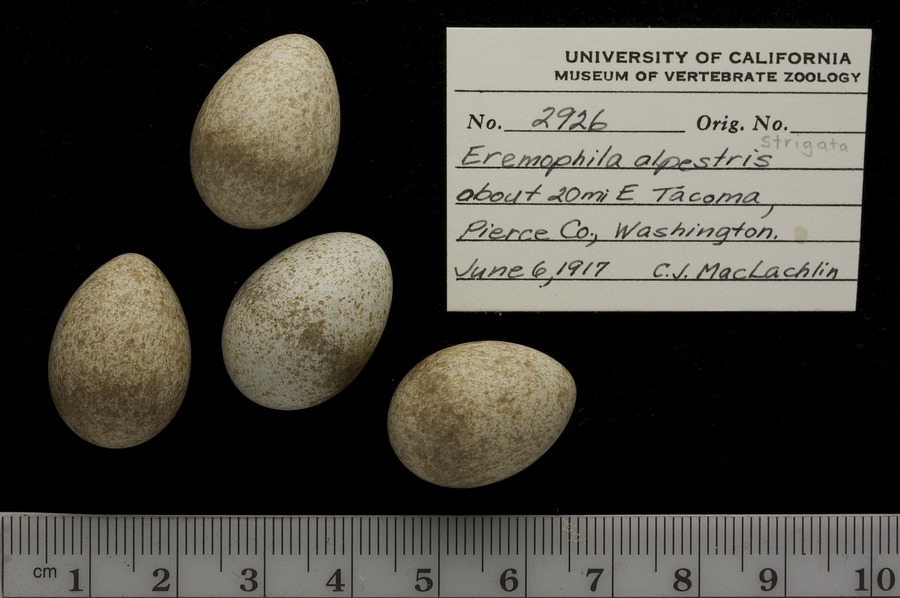 UNIVERSITY OF CALIFORNIA
MUSEUM OF VERTEBRATE ZOOLOGY
No. 2926 Orig. No.
strigata
Eremophila alpestris
about 20mi E Tacoma,
Pierce Co., Washington.
June 6, 1917 C.J. MacLachlin
cm 1 2 3 4 5 6 7 8 9 10